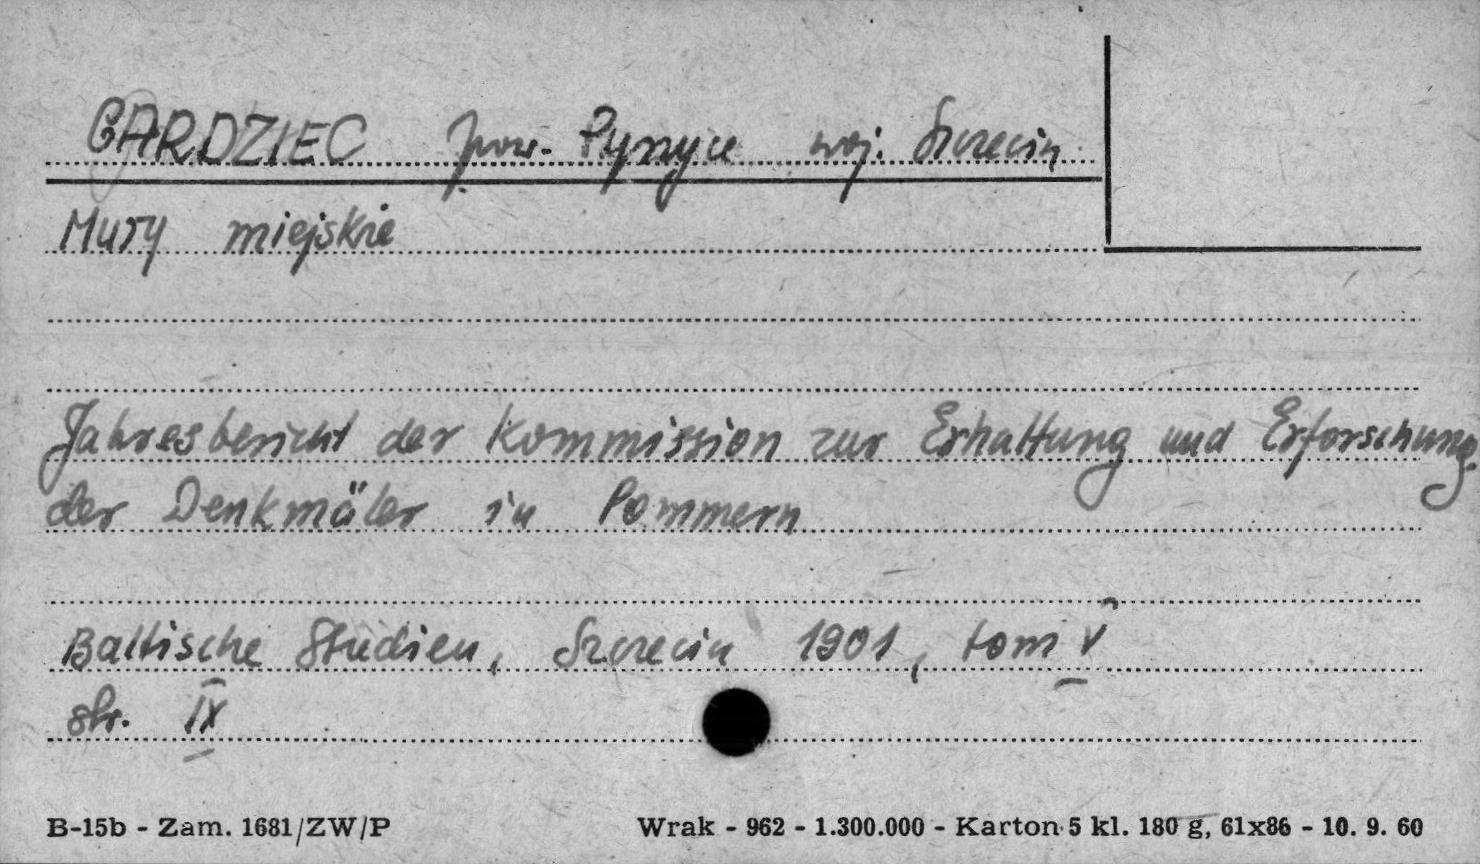 GARDZIEC pow. Pyrzyce woj. Szczecin
Mury miejskie
Jahresbericht der Kommission zur Erhaltung und Erforschung
der Denkmäler in Pommern
Baltische Studien, Szczecin 1901, tom V
str. IX
B-15b - Zam. 1681/ZW/P Wrak - 962 - 1.300.000 - Karton 5 kl. 180 g, 61x86 - 10. 9. 60